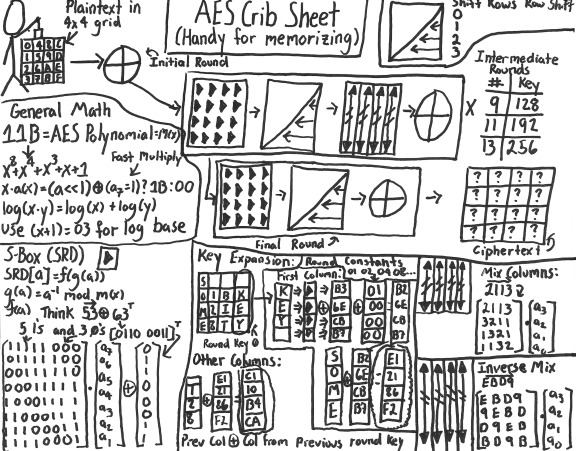 Plaintext in
4x4 grid
0 4 8 C
1 5 9 D
2 6 A E
3 7 B F
AES Crib Sheet
(Handy for memorizing)
Shift Rows Row Shift
0
1
2
3
Initial Round
Intermediate
Rounds
# Key
9 128
11 192
13 256
X
General Math
11B=AES Polynomial=M(x)
x⁸+x⁴+x³+x+1
Fast Multiply
x·a(x)=(a<<1)⊕(a₇=1)?1B:00
log(x·y)=log(x)+log(y)
use (x+1)=03 for log base
Final Round
? ? ? ?
? ? ? ?
? ? ? ?
? ? ? ?
Ciphertext
S-Box (SRD)
SRD[a]=f(g(a))
g(a)=a⁻¹ mod m(x)
f(a) Think 53⊕63ᵀ
5 1s and 3 0s [0110 0011]ᵀ
a₇
a₆
a₅
a₄
a₃
a₂
a₁
a₀
Key Expansion:
Round Constants
01 02 04 08...
First Column:
S
O 1 B K
M 2 I E
E 8 T Y
Round Key 0
K
E
Y
B3
6E
CB
B7
01
00
00
00
B2
6E
CB
B7
Other Columns:
T
2
8
E1
21
86
F2
C1
10
B4
CA
S
O
M
E
B2
6E
CB
B7
E1
21
86
F2
Prev Col ⊕ Col from Previous round key
Mix Columns:
2113
2113
3211
1321
1132
a₃
a₂
a₁
a₀
Inverse Mix
EBD9
EBD9
9EBD
D9EB
BD9E
a₃
a₂
a₁
a₀